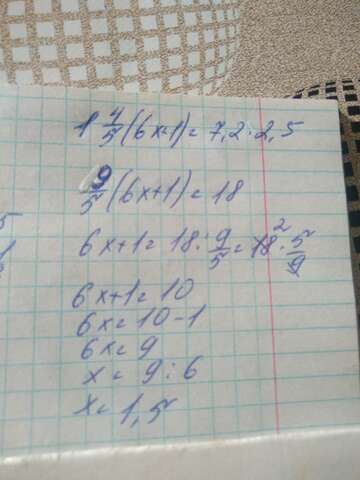 1 4/5 (6x+1) = 7,2 · 2,5
9/5 (6x+1) = 18
6x+1 = 18 : 9/5 = 18 2 · 5/9
6x+1 = 10
6x = 10 - 1
6x = 9
x = 9 : 6
x = 1,5